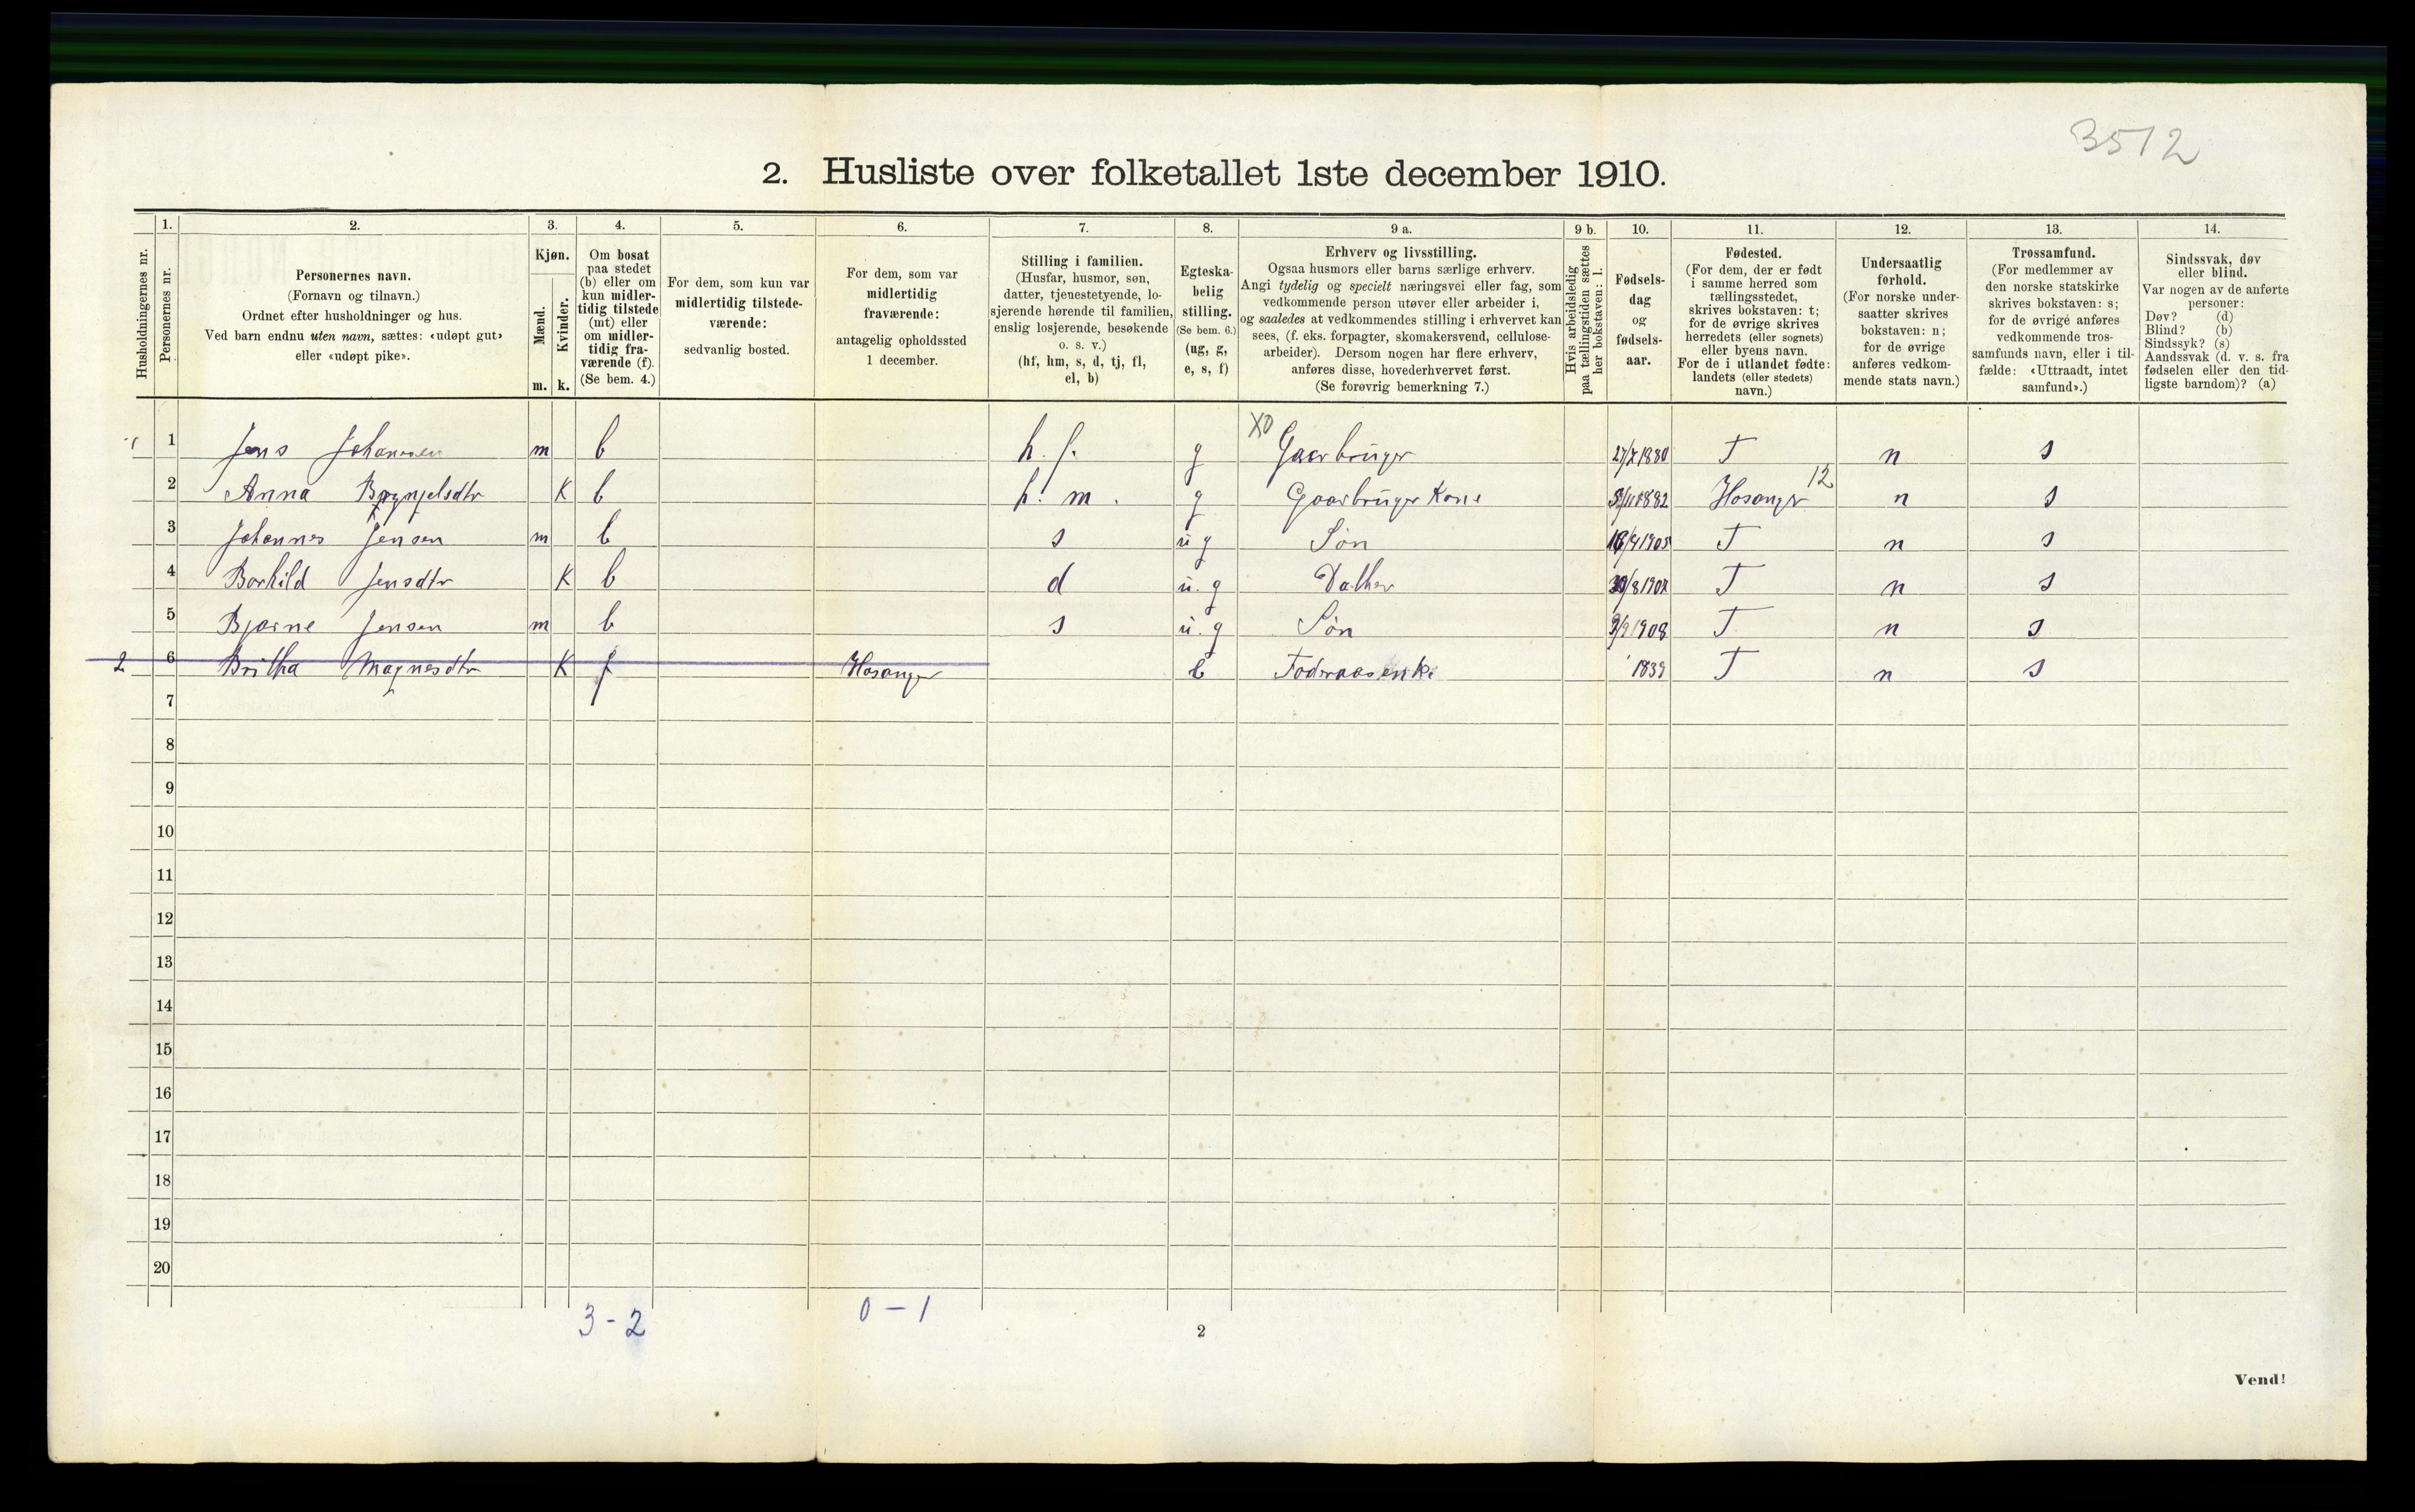 3512
2. Husliste over folketallet 1ste december 1910.
Husholdningernes nr.
1.
Personernes nr.
2.
Personernes navn.
(Fornavn og tilnavn.)
Ordnet efter husholdninger og hus.
Ved barn endnu uten navn, sættes: «udøpt gut»
eller «udøpt pike».
3.
Kjøn.
Mænd.
m.
Kvinder.
k.
4.
Om bosat
paa stedet
(b) eller om
kun midler-
tidig tilstede
(mt) eller
om midler-
tidig fra-
værende (f).
(Se bem. 4.)
5.
For dem, som kun var
midlertidig tilstede-
værende:
sedvanlig bosted.
6.
For dem, som var
midlertidig
fraværende:
antagelig opholdssted
1 december.
7.
Stilling i familien.
(Husfar, husmor, søn,
datter, tjenestetyende, lo-
sjerende hørende til familien,
enslig losjerende, besøkende
o. s. v.)
(hf, hm, s, d, tj, fl,
el, b)
8.
Egteska-
belig
stilling.
(Se bem. 6.)
(ug, g,
e, s, f)
9 a.
Erhverv og livsstilling.
Ogsaa husmors eller barns særlige erhverv.
Angi tydelig og specielt næringsvei eller fag, som
vedkommende person utøver eller arbeider i,
og saaledes at vedkommendes stilling i erhvervet kan
sees, (f. eks. forpagter, skomakersvend, cellulose-
arbeider). Dersom nogen har flere erhverv,
anføres disse, hovederhvervet først.
(Se forøvrig bemerkning 7.)
9 b.
Hvis arbeidsledig
paa tællingstiden sættes
her bokstaven: l.
10.
Fødsels-
dag
og
fødsels-
aar.
11.
Fødested.
(For dem, der er født
i samme herred som
tællingsstedet,
skrives bokstaven: t;
for de øvrige skrives
herredets (eller sognets)
eller byens navn.
For de i utlandet fødte:
landets (eller stedets)
navn.)
12.
Undersaatlig
forhold.
(For norske under-
saatter skrives
bokstaven: n;
for de øvrige
anføres vedkom-
mende stats navn.)
13.
Trossamfund.
(For medlemmer av
den norske statskirke
skrives bokstaven: s;
for de øvrige anføres
vedkommende tros-
samfunds navn, eller i til-
fælde: «Uttraadt, intet
samfund».)
14.
Sindssvak, døv
eller blind.
Var nogen av de anførte
personer:
Døv? (d)
Blind? (b)
Sindssyk? (s)
Aandssvak (d. v. s. fra
fødselen eller den tid-
ligste barndom)? (a)
1 Jens Johannsen m b h. f. g X0 Gaarbruger 1880 T n s
2 Anna K b h. m. g Gaarbruger Kone 1882 Hosanger 12 n s
3 Johannes Jensen m b s ug Søn 1905 T n s
4 Borhild Jensdtr K b d u. g Dather T n s
5 Bjarne Jensen m b s u. g Søn 1908 T n s
2 6 Britha Magnesdtr K f Hosanger e Foderaasenke 1839 T n s
7
8
9
10
11
12
13
14
15
16
17
18
19
20
3 - 2 0 - 1
2
Vend!